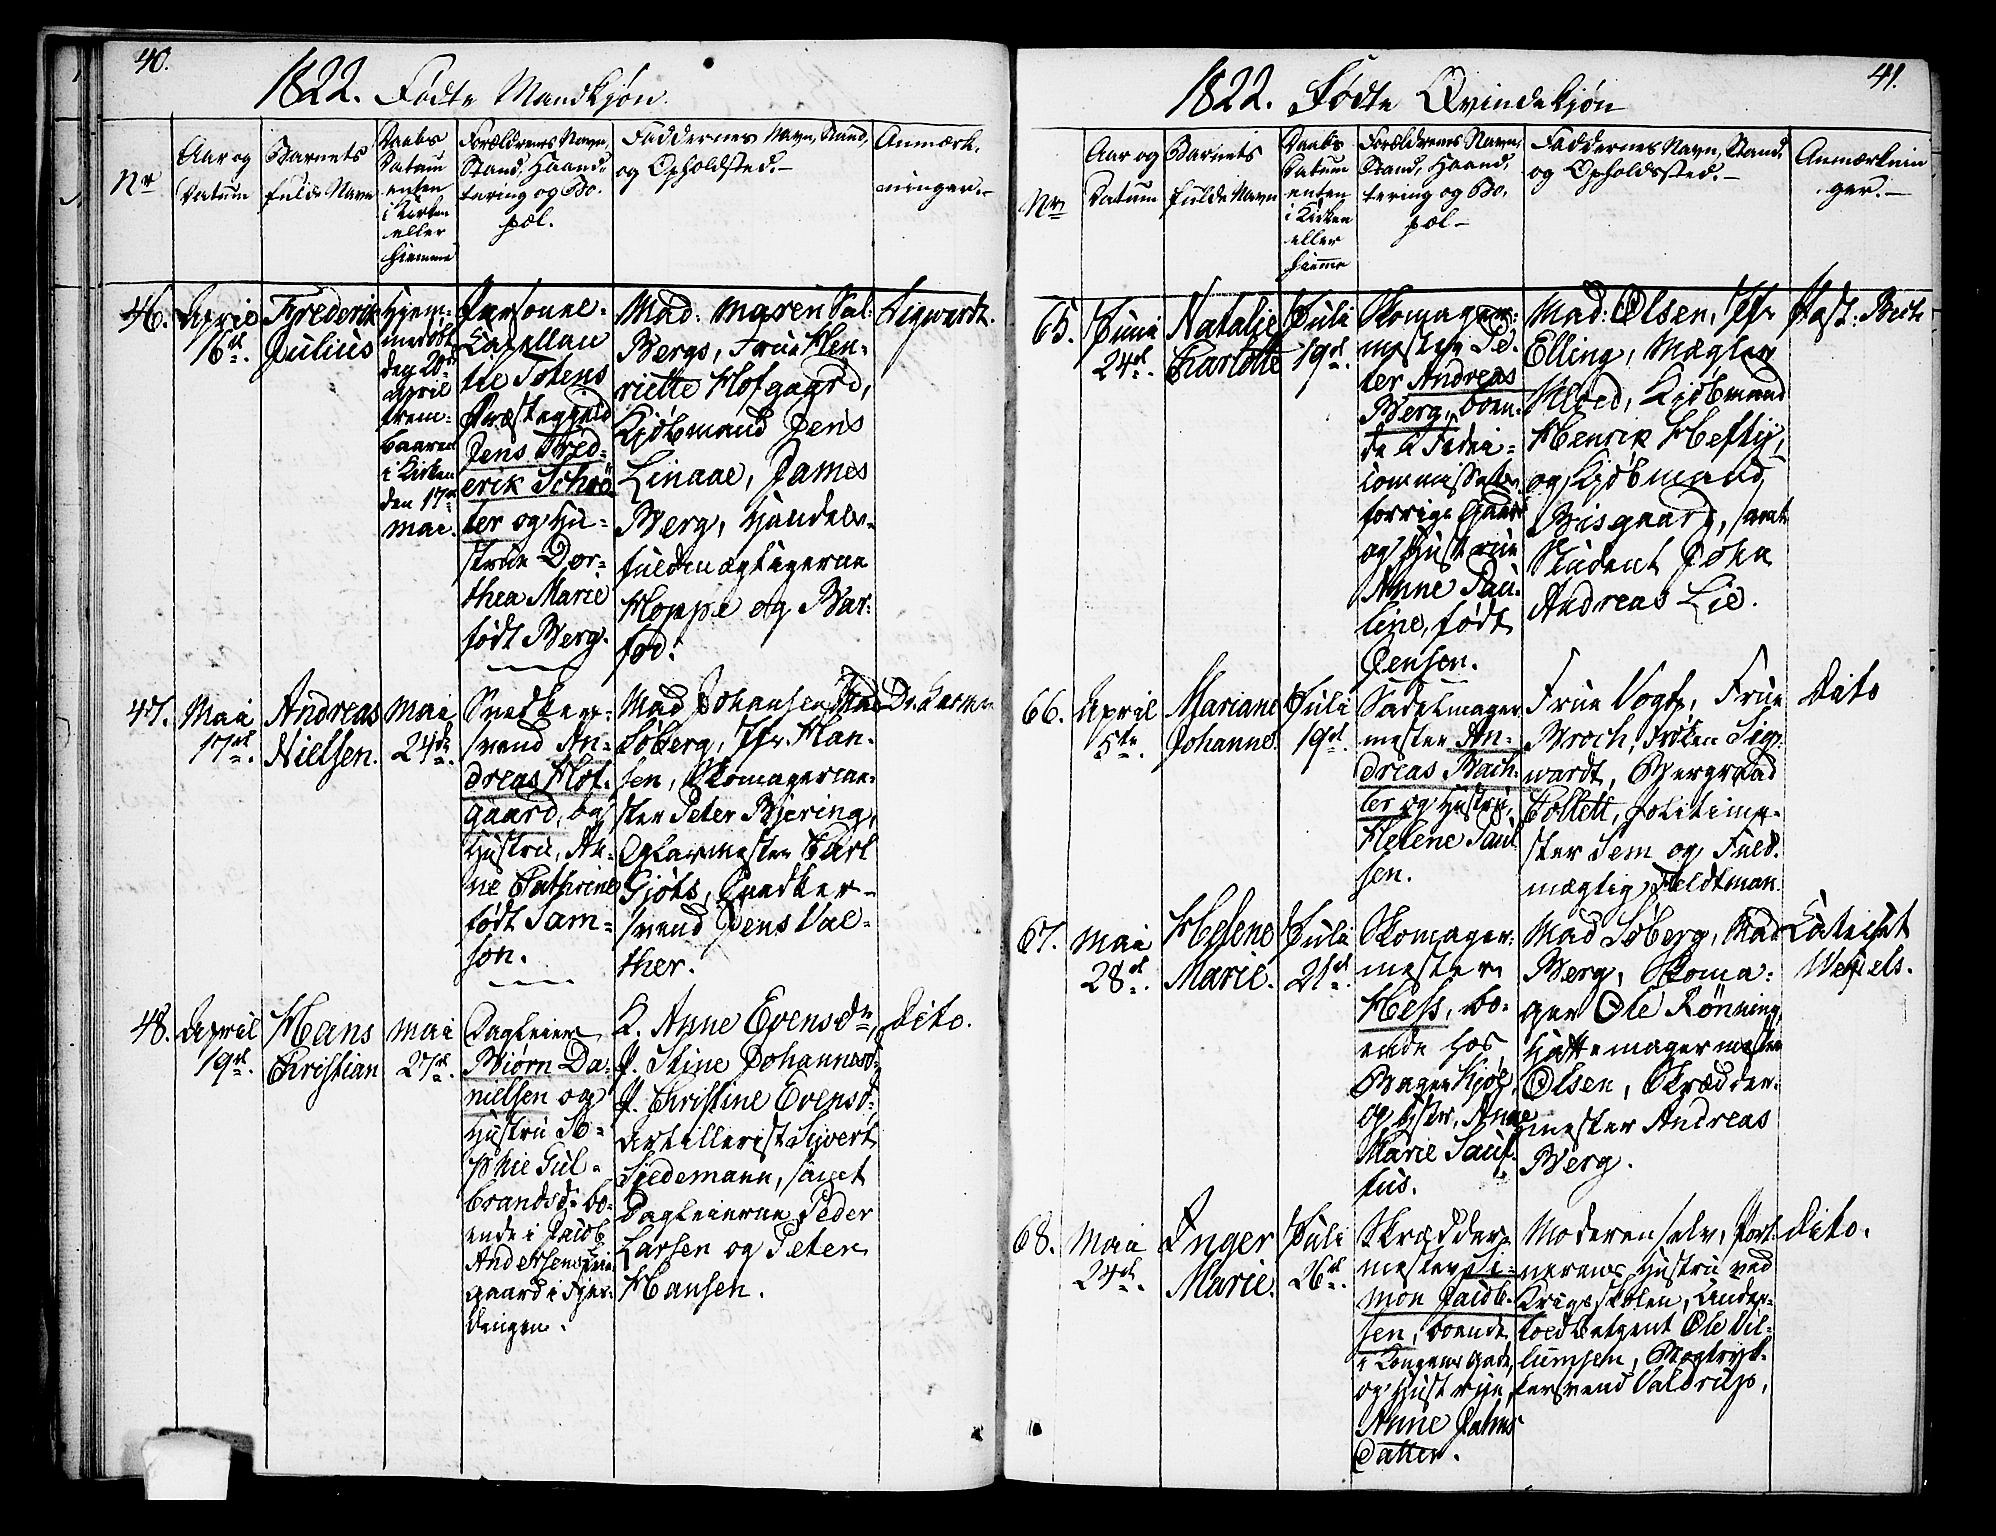 40.
1822. Fødte Mandkjøn.
Nr
Aar og
Datum
Barnets
fulde Navn
Daabs
Datum
enten
i Kirken
eller
hiemme
Forældrenes Navn,
Stand, Haand,
tering og Bo.
pæl.
Faddernes Navn, Stand,
og Opholdsted.-
Anmærk.
ninger.-
46.
April
16d.
Frederik
Julius
Hjem-
medøbt
den 20d
April
frem-
baaren
i Kirken
den 17d
Mai.
Personel-
Capellan
til Totens
Præstegjeld
Jens Fred-
erik Schrö-
ter og Hu-
strue Dor-
thea Marie
født Berg.
Mad: Maren Sal-
Bergs, Frue Hen-
riette Hofgaard,
Kjöbmand Jens
Linaae, James
Berg, Handels-
fuldmægtigerne
Hoppe og Bar-
fod.
Sigwardt.
47.
Mai
17d.
Andreas
Nielsen.
Mai
24de.
Snedker-
svend An-
dreas Hof-
gaard, og
Hustru, An-
ne Cathrine
født Sam-
son.
Mad Johansen, Mad
Soberg, Jfr. Han-
sen, Skomagerme-
ster Peter Bjering,
Glarmester Carl
Gjöts, Snedker-
svend Jens Val-
ther.
48.
April
19d.
Hans
Christian
Mai
27d.
Dagleier
Biørn Da-
nielsen og
Hustru So-
phie Gul-
brandsd. bo-
ende i Jacob
Andersens
gaard i Fjer-
dingen.
K. Anne Evensd.
P. Stine Johannesd.
P. Christine Evensd.
Artillerist Sivert
Siedemann, samt
Dagleierne Peder
Larsen og Peter
Hansen.
Dito.
41.
1822. Fødte Qvindekjøn
Nr
Aar og
Datum
Barnets
fulde Navn
Daabs
Datum
enten
i Kirken
eller
hiemme
Forældrenes Navn,
Stand, Haand,
tering og Bo,
pæl-
Faddernes Navn, Stand,
og Opholdssted.-
Anmærknin
ger.-
65.
Juni
24d.
Natalie
Carlotte
Juli
19d.
Skomager-
mester Pe-
ter Andreas
Berg, boen-
de i Fidei-
commissets
forrige Gaard
og Hustrue
Anne Pau-
line, født
Jensen.
Mad: Olsen, Jfr
Elling, Mægler
Kjöbmand
Henrik Heftij,
og Kjöbmand
Bisgaard, samt
Student John
Andreas Lie.
Past: Bech
66.
April
5te.
Mariane
Johanne.
Juli
19d.
Sadelmager
mester An-
dreas Bach-
ler og Hustru,
Helene Paul
sen.
Frue Vogt, Frue
Broch, Frøken Sig-
wardt, Bergraad
Collett, Politime-
ster Sem og Fuld-
mægtig Feldtman.
Dito
67.
Mai
28d.
Helene
Marie.
Juli
21d.
Skomager-
mester
Hess, bo-
ende hos
Bager Kjöl
og Hstr. Anne
Marie Pauf
lus.
Mad Söberg, Mad
Berg, Skoma-
ger Ole Rönning,
Hattemagermester
Olsen, Skrædder-
mester Andreas
Berg.
Catechet
Wexels.
68.
Mai
24d.
Inger
Marie.
Juli
26d.
Skrædder-
mester Si-
mon Jacob-
sen, boende
i Kongens Gade,
og Hustrue,
Anne Jahns
Datter.
Moderen selv, Port-
nerens Hustru ved
Krigsskolen, Under-
toldbetjent Ole Vil-
lumsen, Bogtryk-
kersvend Valdrup.
Dito.